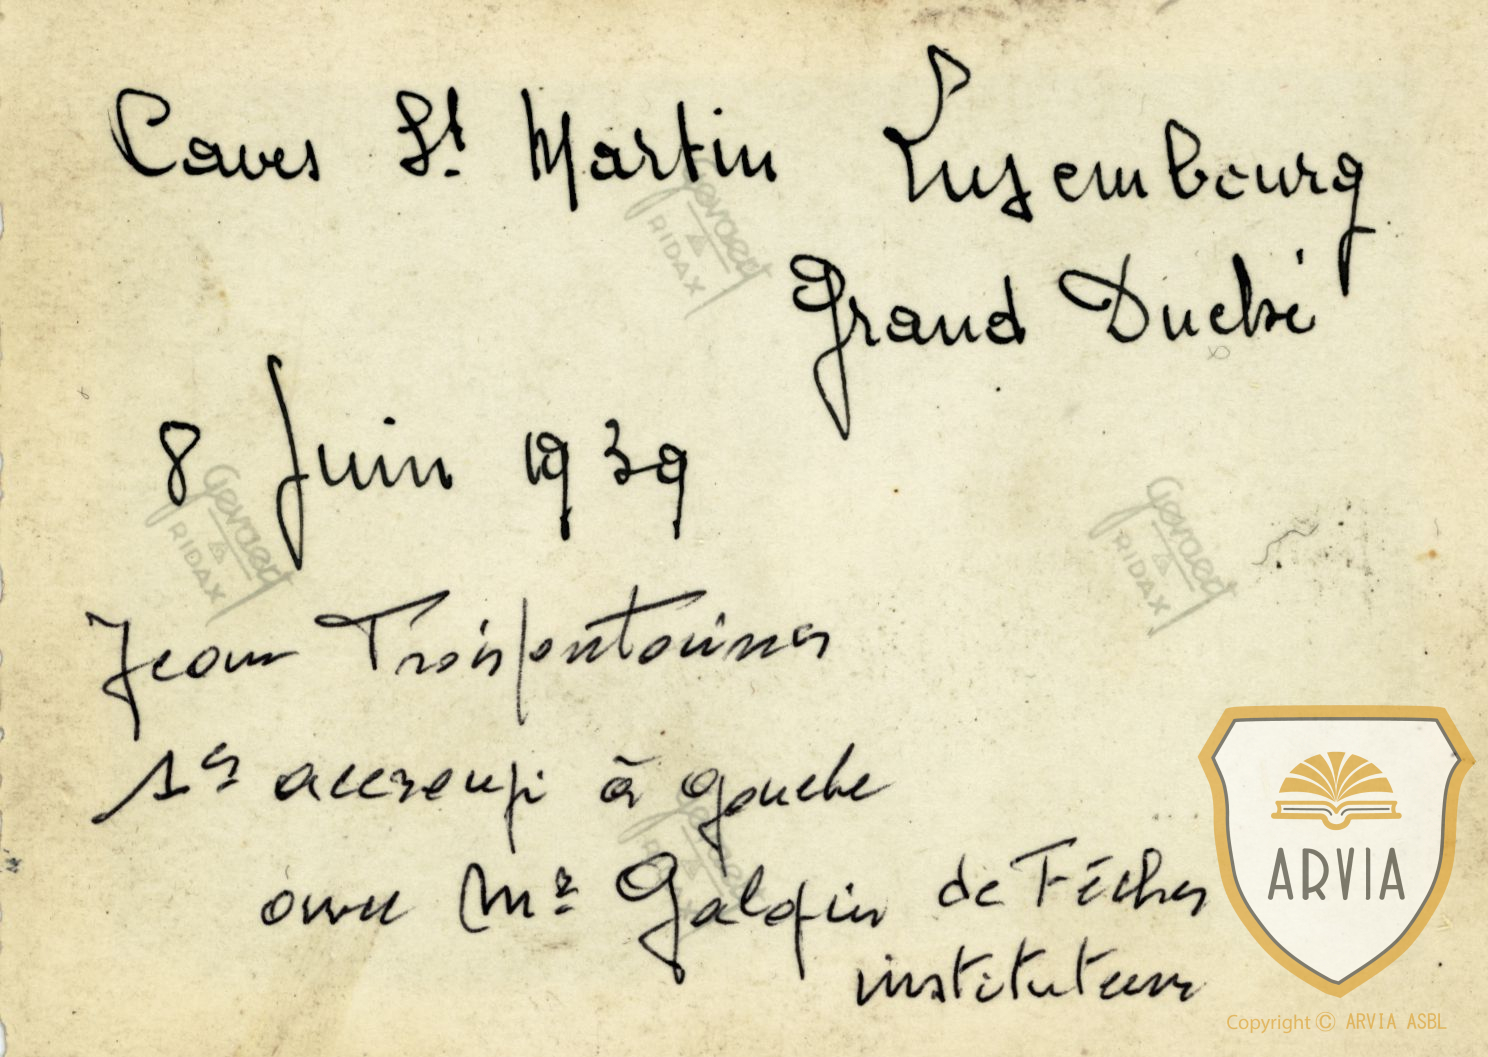 Caves St. Martin Luxembourg
Grand Duché
8 Juin 1939
Jean Troisfontaines
1er accroupi à gauche
avec Mr de Fécher
instituteur
Gevaert
RIDAX
Gevaert
RIDAX
Gevaert
RIDAX
ARVIA
Copyright © ARVIA ASBL